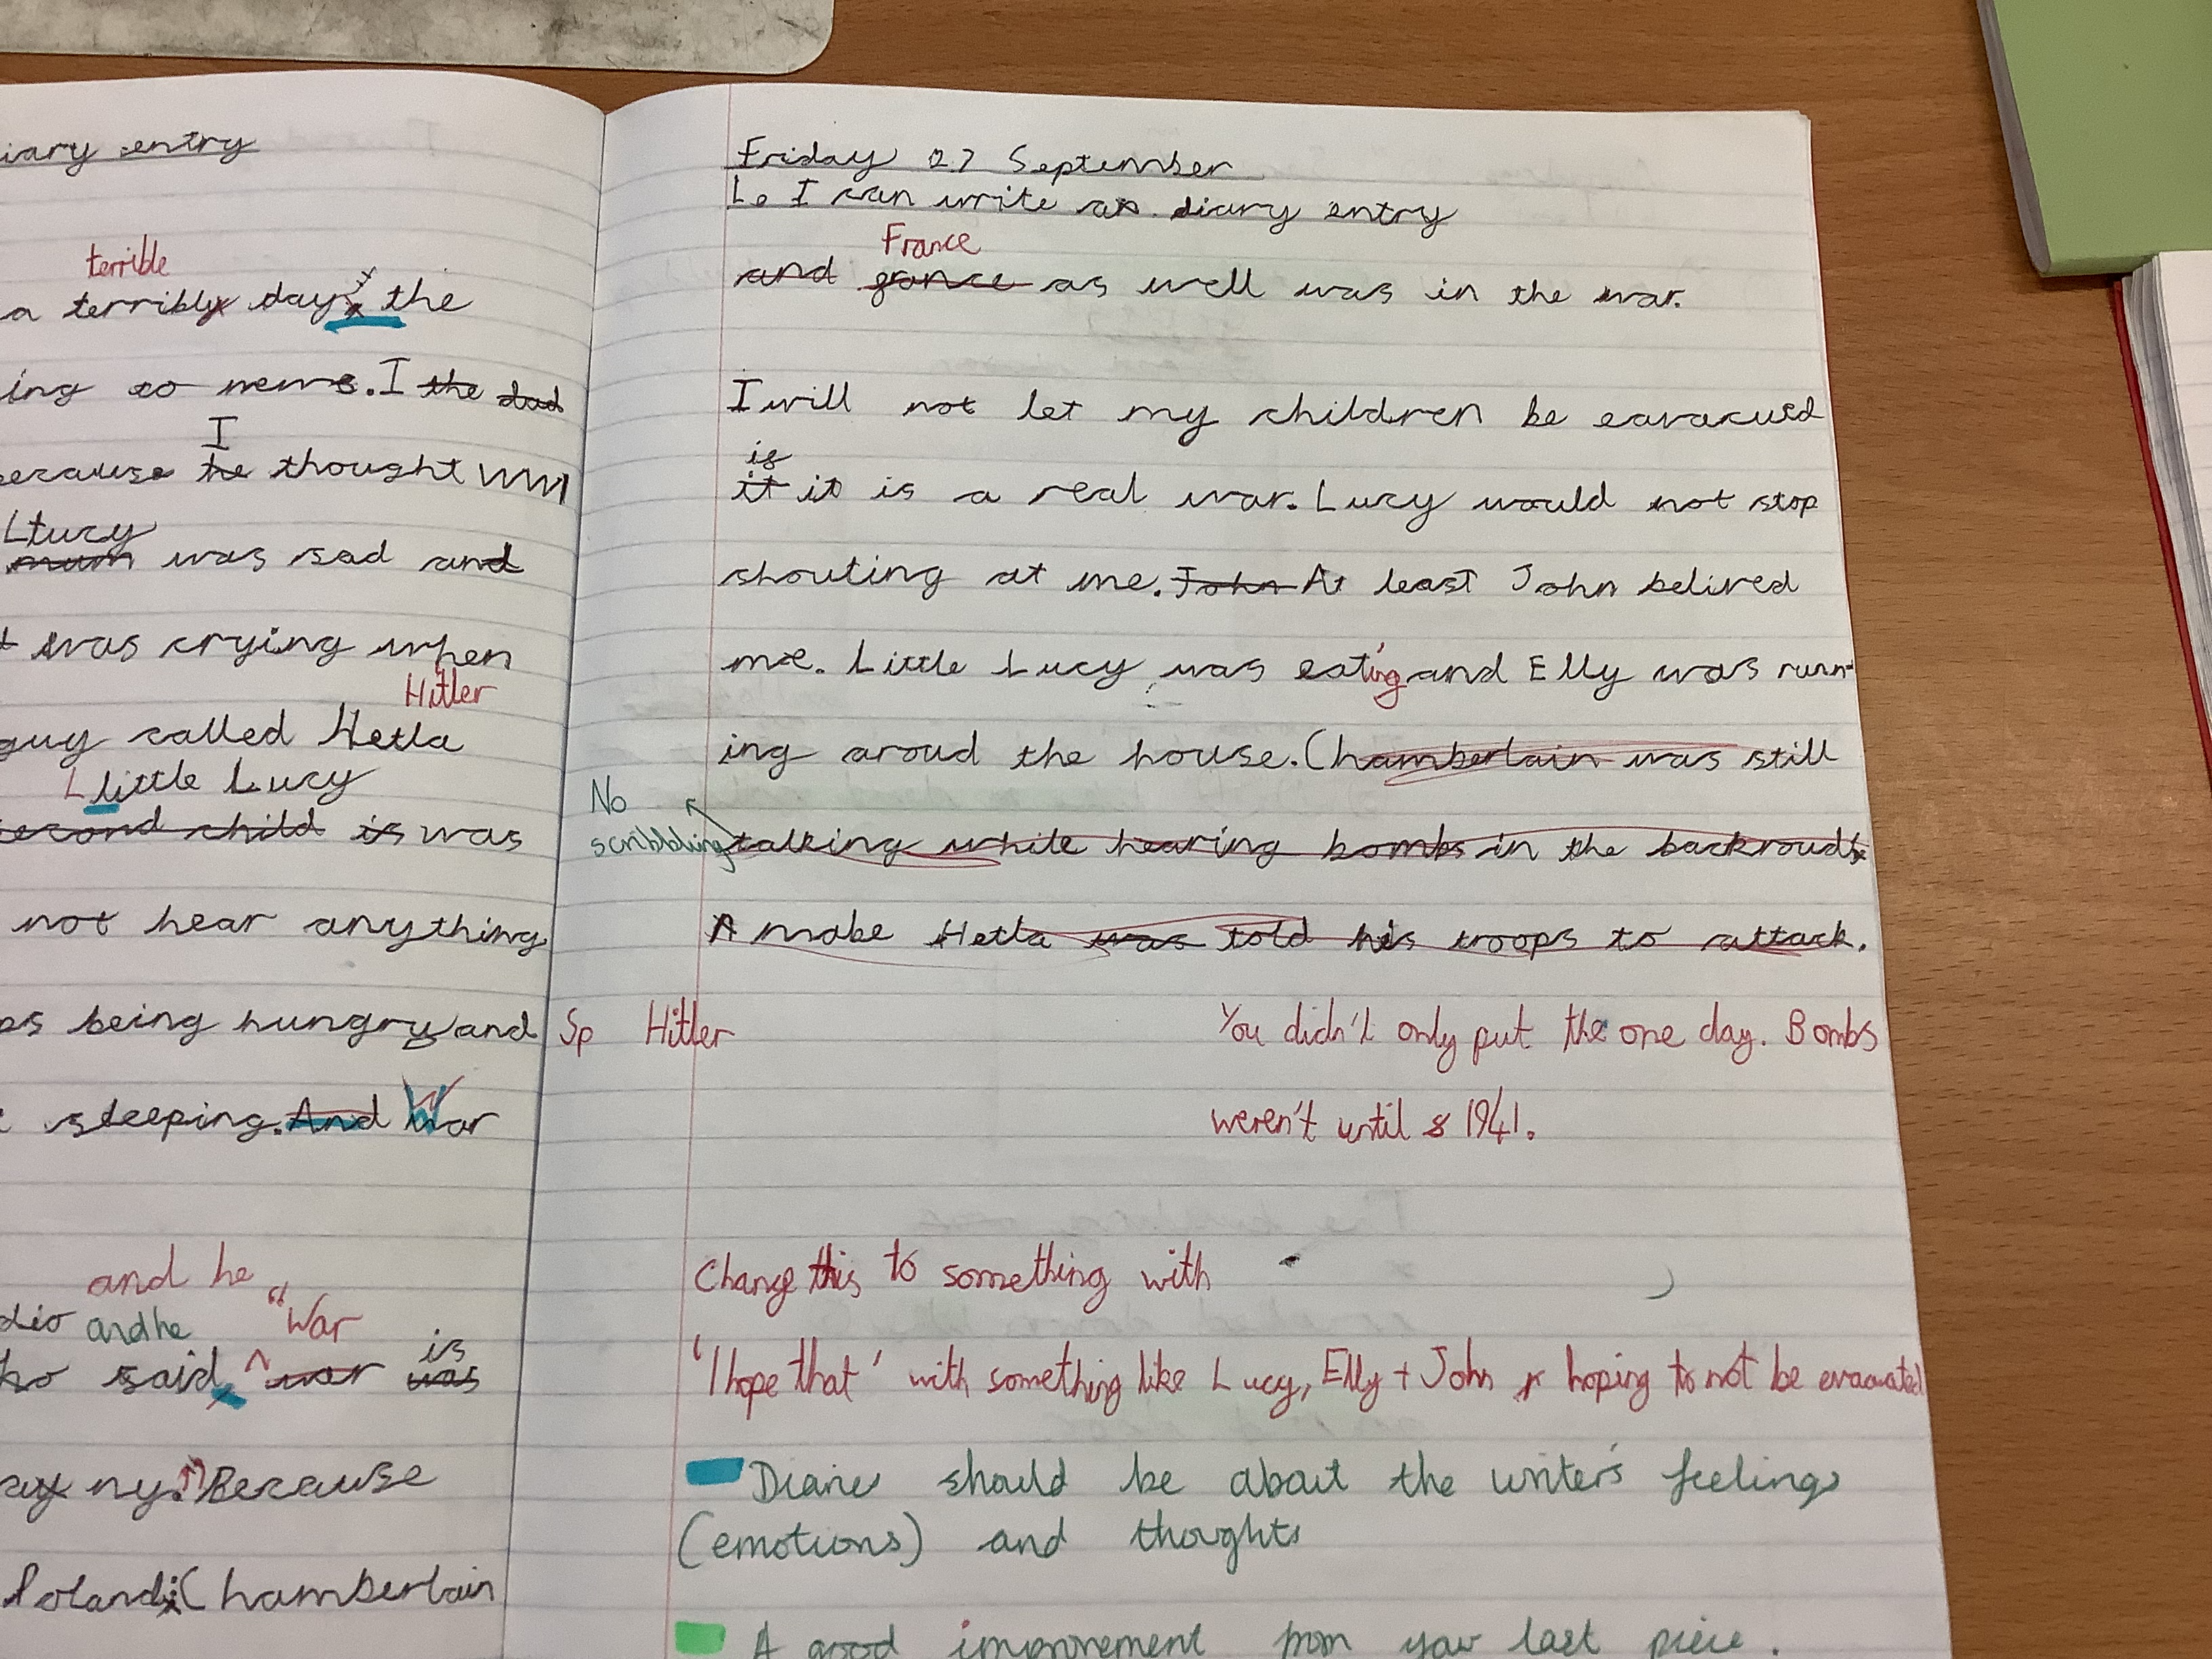 iary entry
terrible
a terribly day, the
ing to news. I the dad
I
ecause he thought WW1
Ltucy
mum was sad and
was crying when
Hitler
guy called Hetla
L little Lucy
second child is was
not hear anything
ps being hungry and
sleeping. And War
and he
dio and he "War
is
said, ^ war was
ny." Because
Poland; Chamberlain
Friday 27 September
Lo I can write a diary entry
France
and france as well was in the war.
I will not let my children be eavacued
is
it it is a real war. Lucy would not stop
shouting at me. John At least John belived
me. Little Lucy was eating and Elly was runn-
ing aroud the house. Chamberlain was still
No
scribbling
talking while hearing bombs in the backroud
A make Hetla was told his troops to attack.
Sp Hitler
You didn't only put the one day. Bombs
weren't until 1941.
Change this to something with
'I hope that' with something like Lucy, Elly + John r hoping to not be evacuated
Diaries should be about the writer's feelings
(emotions) and thoughts
A good improvement from your last piece.